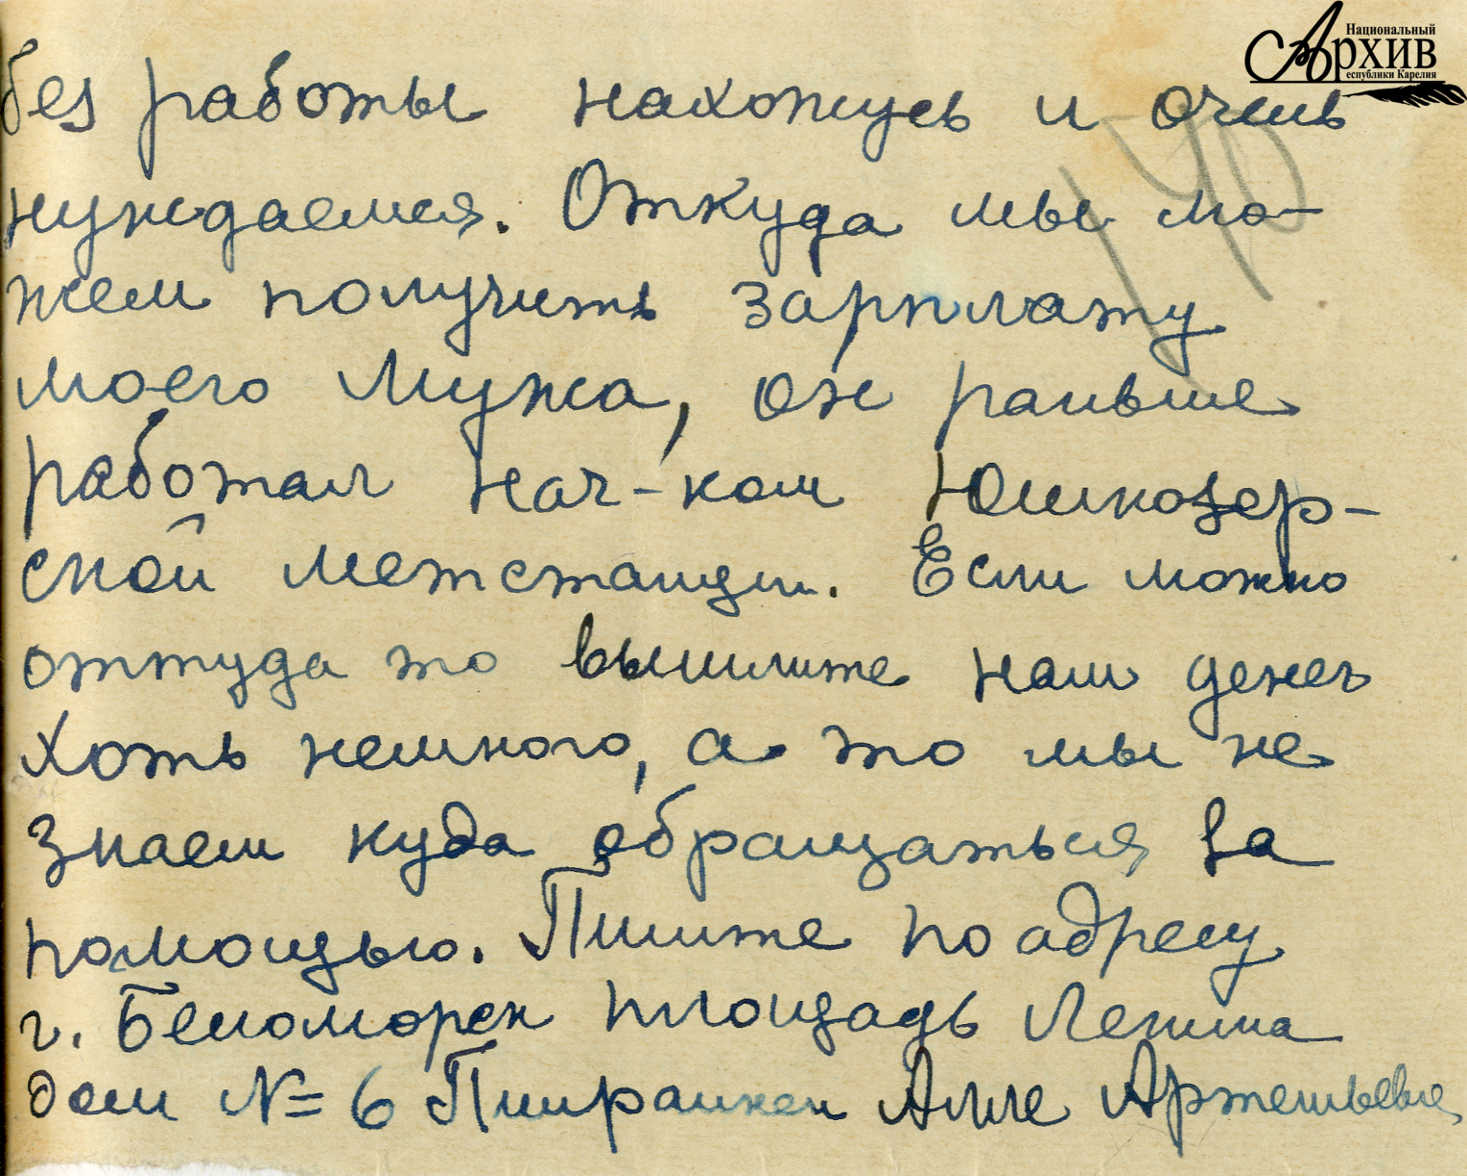 Национальный
Архив
Республики Карелия
190
без работы нахожусь и очень
нуждаемся. Откуда мы мо-
жем получить зарплату
моего мужа, он раньше
работал нач-ком Юшкозер-
ской метстанции. Если можно
оттуда то вышлите нам денег
хоть немного, а то мы не
знаем куда обращаться за
помощью. Пишите по адресу
г. Беломорск площадь Ленина
дом № 6 Пиирайнен Алле Артемьевне